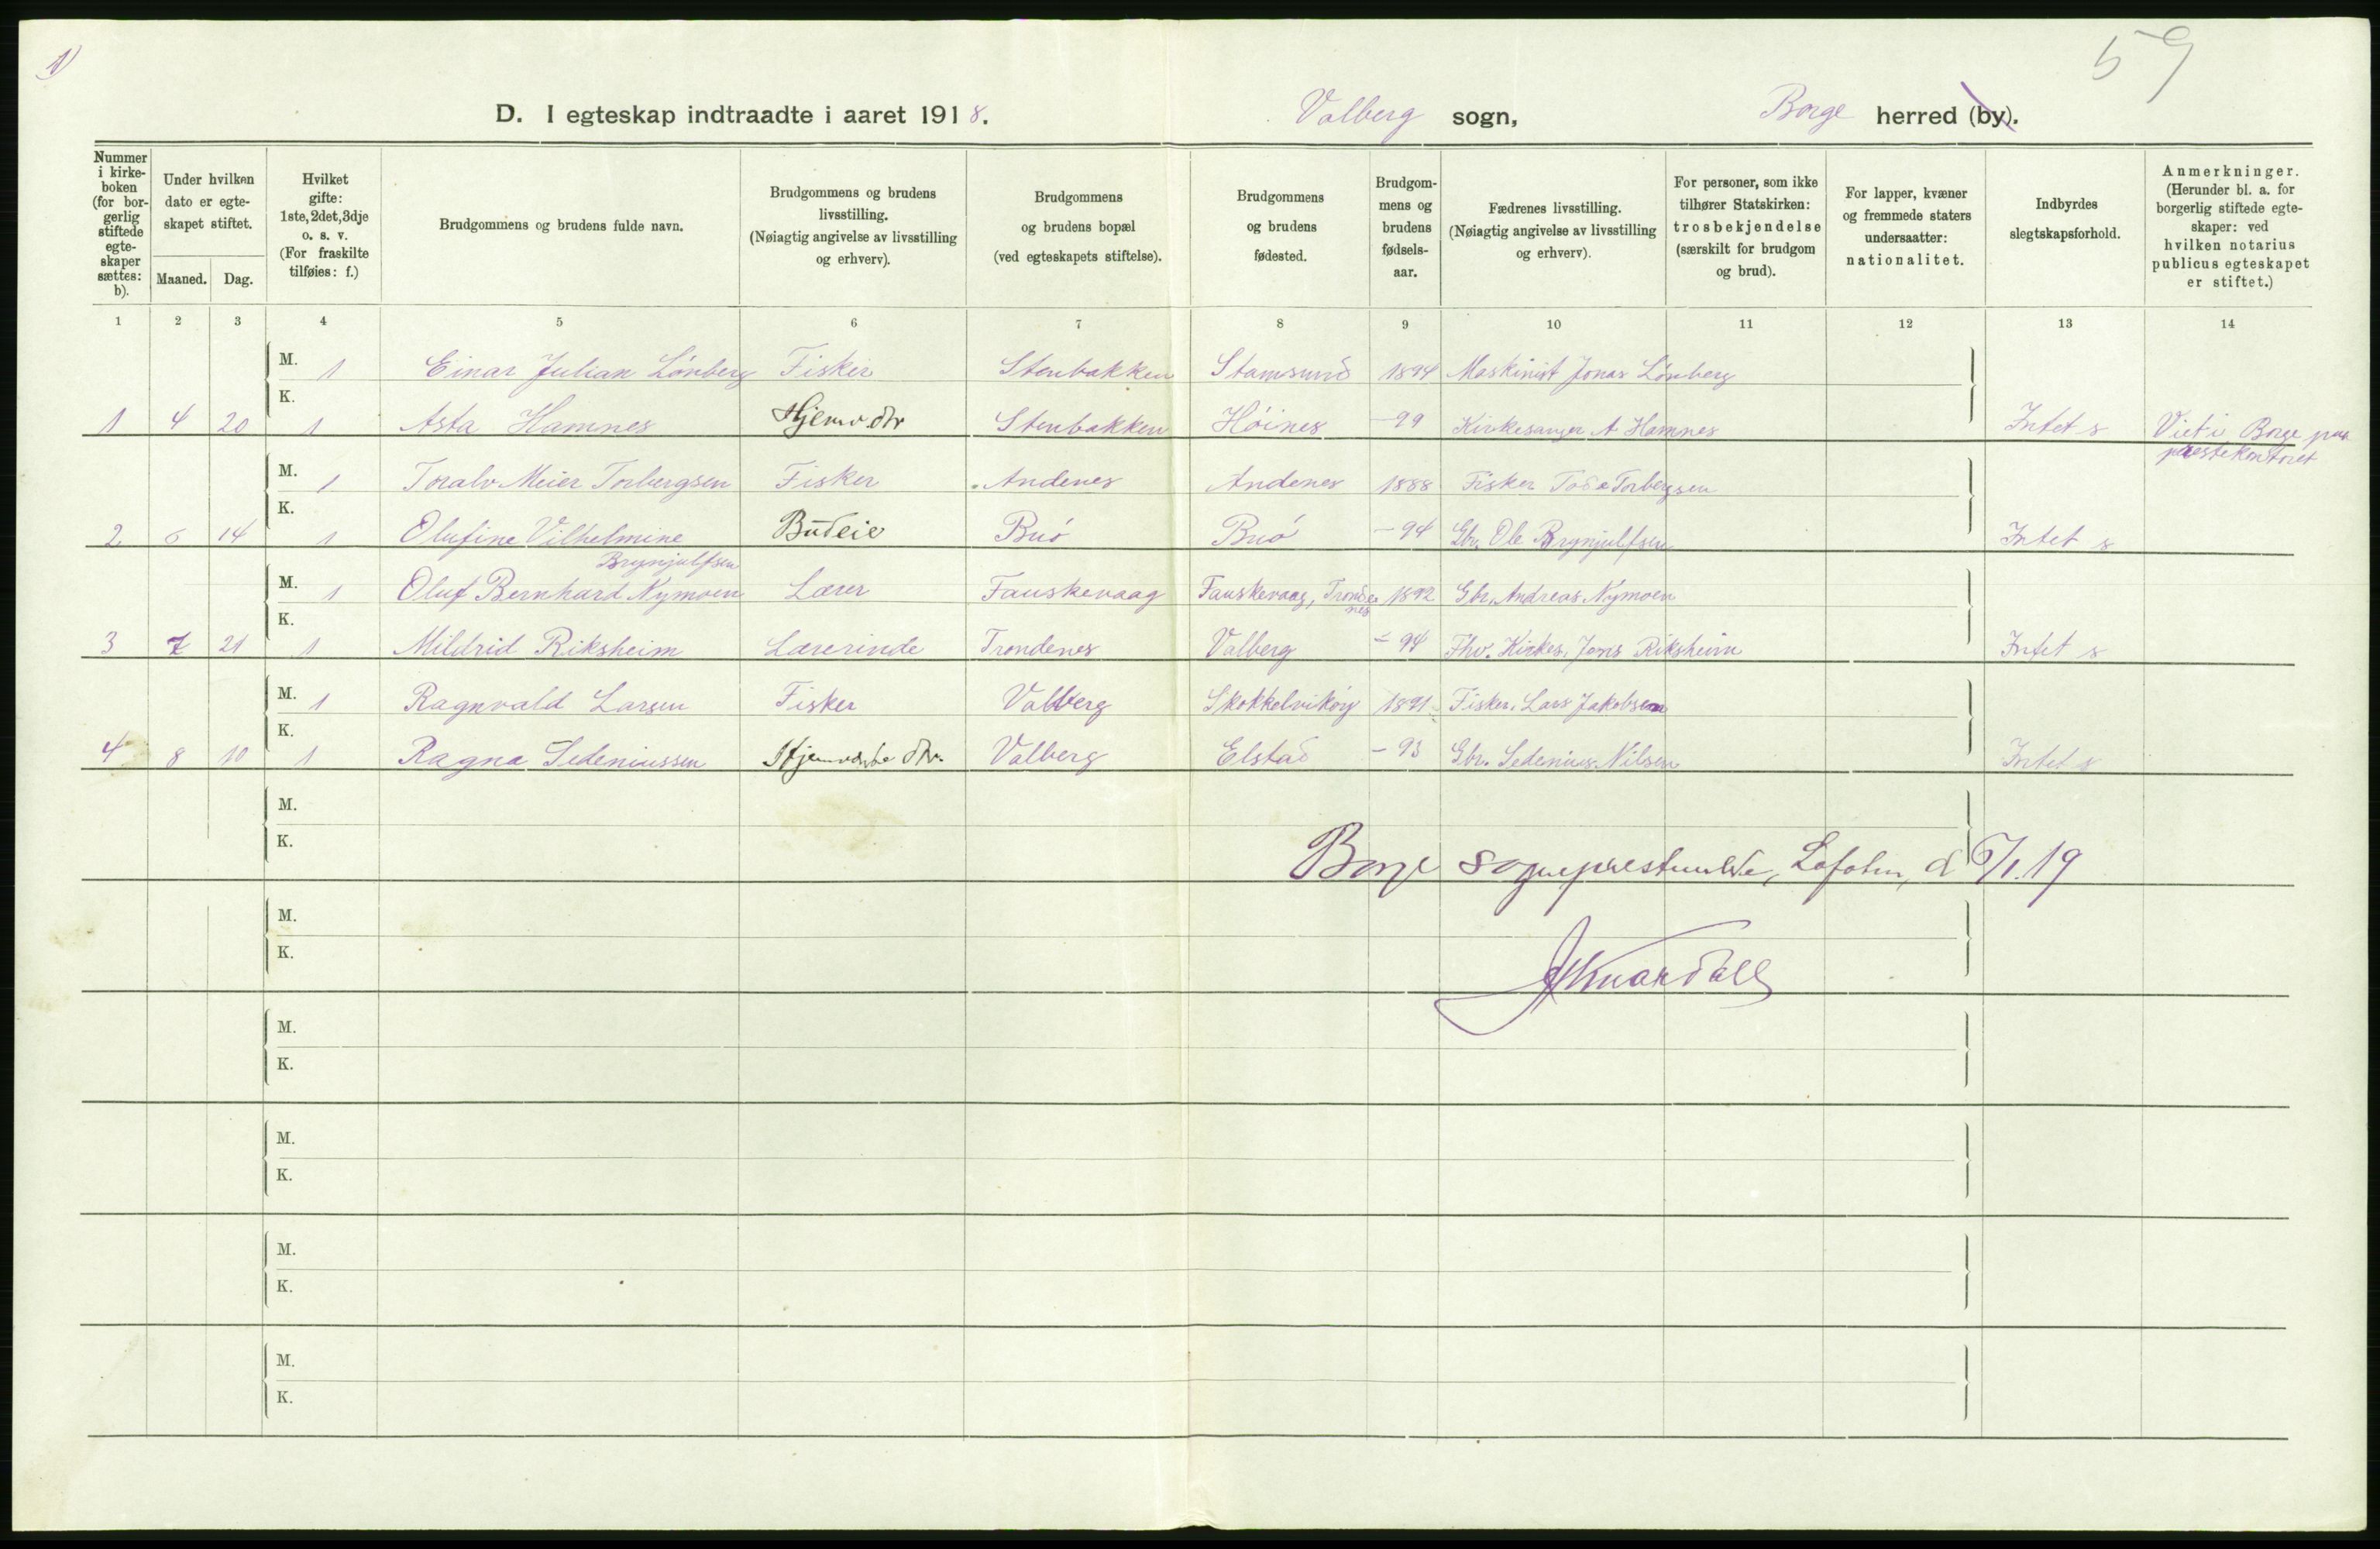 1)
59
D. I egteskap indtraadte i aaret 1918. Valberg sogn, Borge herred (by).
Nummer i kirkeboken (for borgerlig stiftede egteskaper sættes: b).
Under hvilken dato er egteskapet stiftet.
Maaned. Dag.
Hvilket gifte: 1ste, 2det, 3dje o. s. v. (For fraskilte tilføies: f.)
Brudgommens og brudens fulde navn.
Brudgommens og brudens livsstilling. (Nøiagtig angivelse av livsstilling og erhverv).
Brudgommens og brudens bopæl (ved egteskapets stiftelse).
Brudgommens og brudens fødested.
Brudgommens og brudens fødselsaar.
Fædrenes livsstilling. (Nøiagtig angivelse av livsstilling og erhverv).
For personer, som ikke tilhører Statskirken: trosbekjendelse (særskilt for brudgom og brud).
For lapper, kvæner og fremmede staters undersaatter: nationalitet.
Indbyrdes slegtskapsforhold.
Anmerkninger. (Herunder bl. a. for borgerlig stiftede egteskaper: ved hvilken notarius publicus egteskapet er stiftet.)
1 2 3 4 5 6 7 8 9 10 11 12 13 14
M. 1 Einar Julian Lönberg Fisker Stenbakken Stamsund 1894 Maskinist Jonas Lönberg
K.
1 4 20 1 Asta Hamnes Hjemv. dtr Stenbakken Höines -99 Kirkesanger A Hamnes Intet s Viet i Borge paa
prestekontoret
M. 1 Toralv Meier Torbergsen Fisker Andenes Andenes 1888 Fisker Torbergsen
K.
2 6 14 1 Olufine Vilhelmine Budeie Buö Buö -94 Gbr. Ole Brynjulfsen Intet s
Brynjulfsen
M. 1 Oluf Bernhard Nymoen Lærer Fauskevaag Fauskevaag, Trondenes 1892 Gbr. Andreas Nymoen
K.
3 7 21 1 Mildrid Riksheim Lærerinde Trondenes Valberg -94 Fhv. Kirkes. Jens Riksheim Intet s
M. 1 Ragnvald Larsen Fisker Valberg 1891 Fisker. Lars Jakobsen
K.
4 8 10 1 Ragna Sedeniussen Hjemv dtr. Valberg Elstad -93 Gbr. Sedenius Nilsen Intet s
M.
K.
Borge sogneprestembede, Lofoten, d 6/1.19
M.
K.
M.
K.
M.
K.
M.
K.
M.
K.